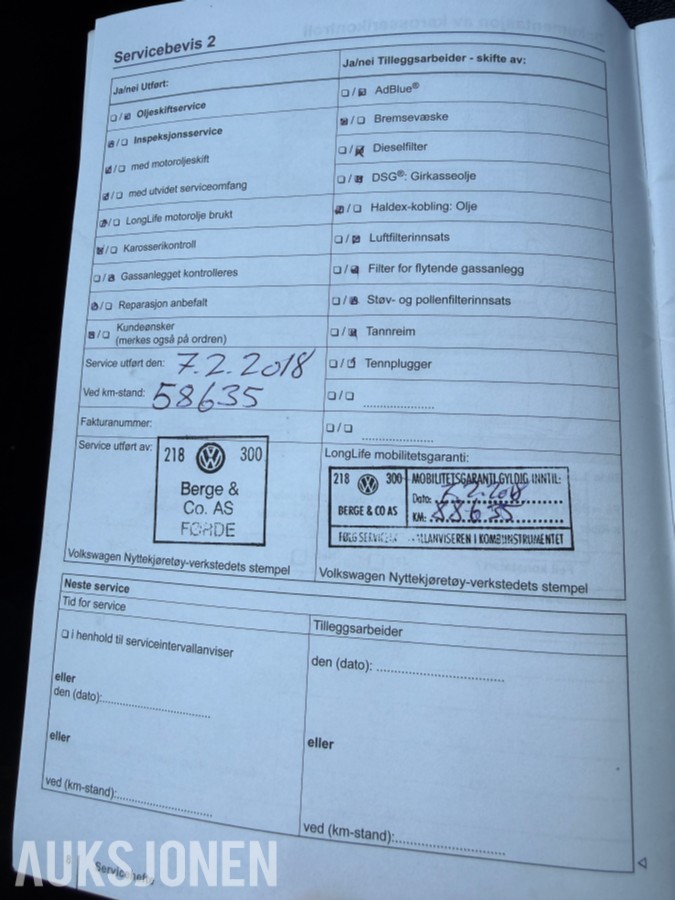 Servicebevis 2
Ja/nei Utført:
Ja/nei Tilleggsarbeider - skifte av:
/ Oljeskiftservice
/ Inspeksjonsservice
/ med motoroljeskift
/ med utvidet serviceomfang
/ LongLife motorolje brukt
/ Karosserikontroll
/ Gassanlegget kontrolleres
/ Reparasjon anbefalt
/ Kundeønsker
(merkes også på ordren)
/ AdBlue®
/ Bremsevæske
/ Dieselfilter
/ DSG®: Girkasseolje
/ Haldex-kobling: Olje
/ Luftfilterinnsats
/ Filter for flytende gassanlegg
/ Støv- og pollenfilterinnsats
/ Tannreim
/ Tennplugger
/ ....................
/ ....................
Service utført den: 7.2.2018
Ved km-stand: 58635
Fakturanummer:
Service utført av:
218 VW 300
Berge &
Co. AS
FØRDE
Volkswagen Nyttekjøretøy-verkstedets stempel
LongLife mobilitetsgaranti:
218 VW 300
BERGE & CO AS
MOBILITETSGARANTI GYLDIG INNTIL:
Dato: 7.2.2018
KM: 88.635
FØLG SERVICE LLANVISEREN I KOMBIINSTRUMENTET
Volkswagen Nyttekjøretøy-verkstedets stempel
Neste service
Tid for service
i henhold til serviceintervallanviser
eller
den (dato):....................
eller
ved (km-stand):....................
Tilleggsarbeider
den (dato): ....................
eller
ved (km-stand):....................
8 Servicehefte
AUKSJONEN